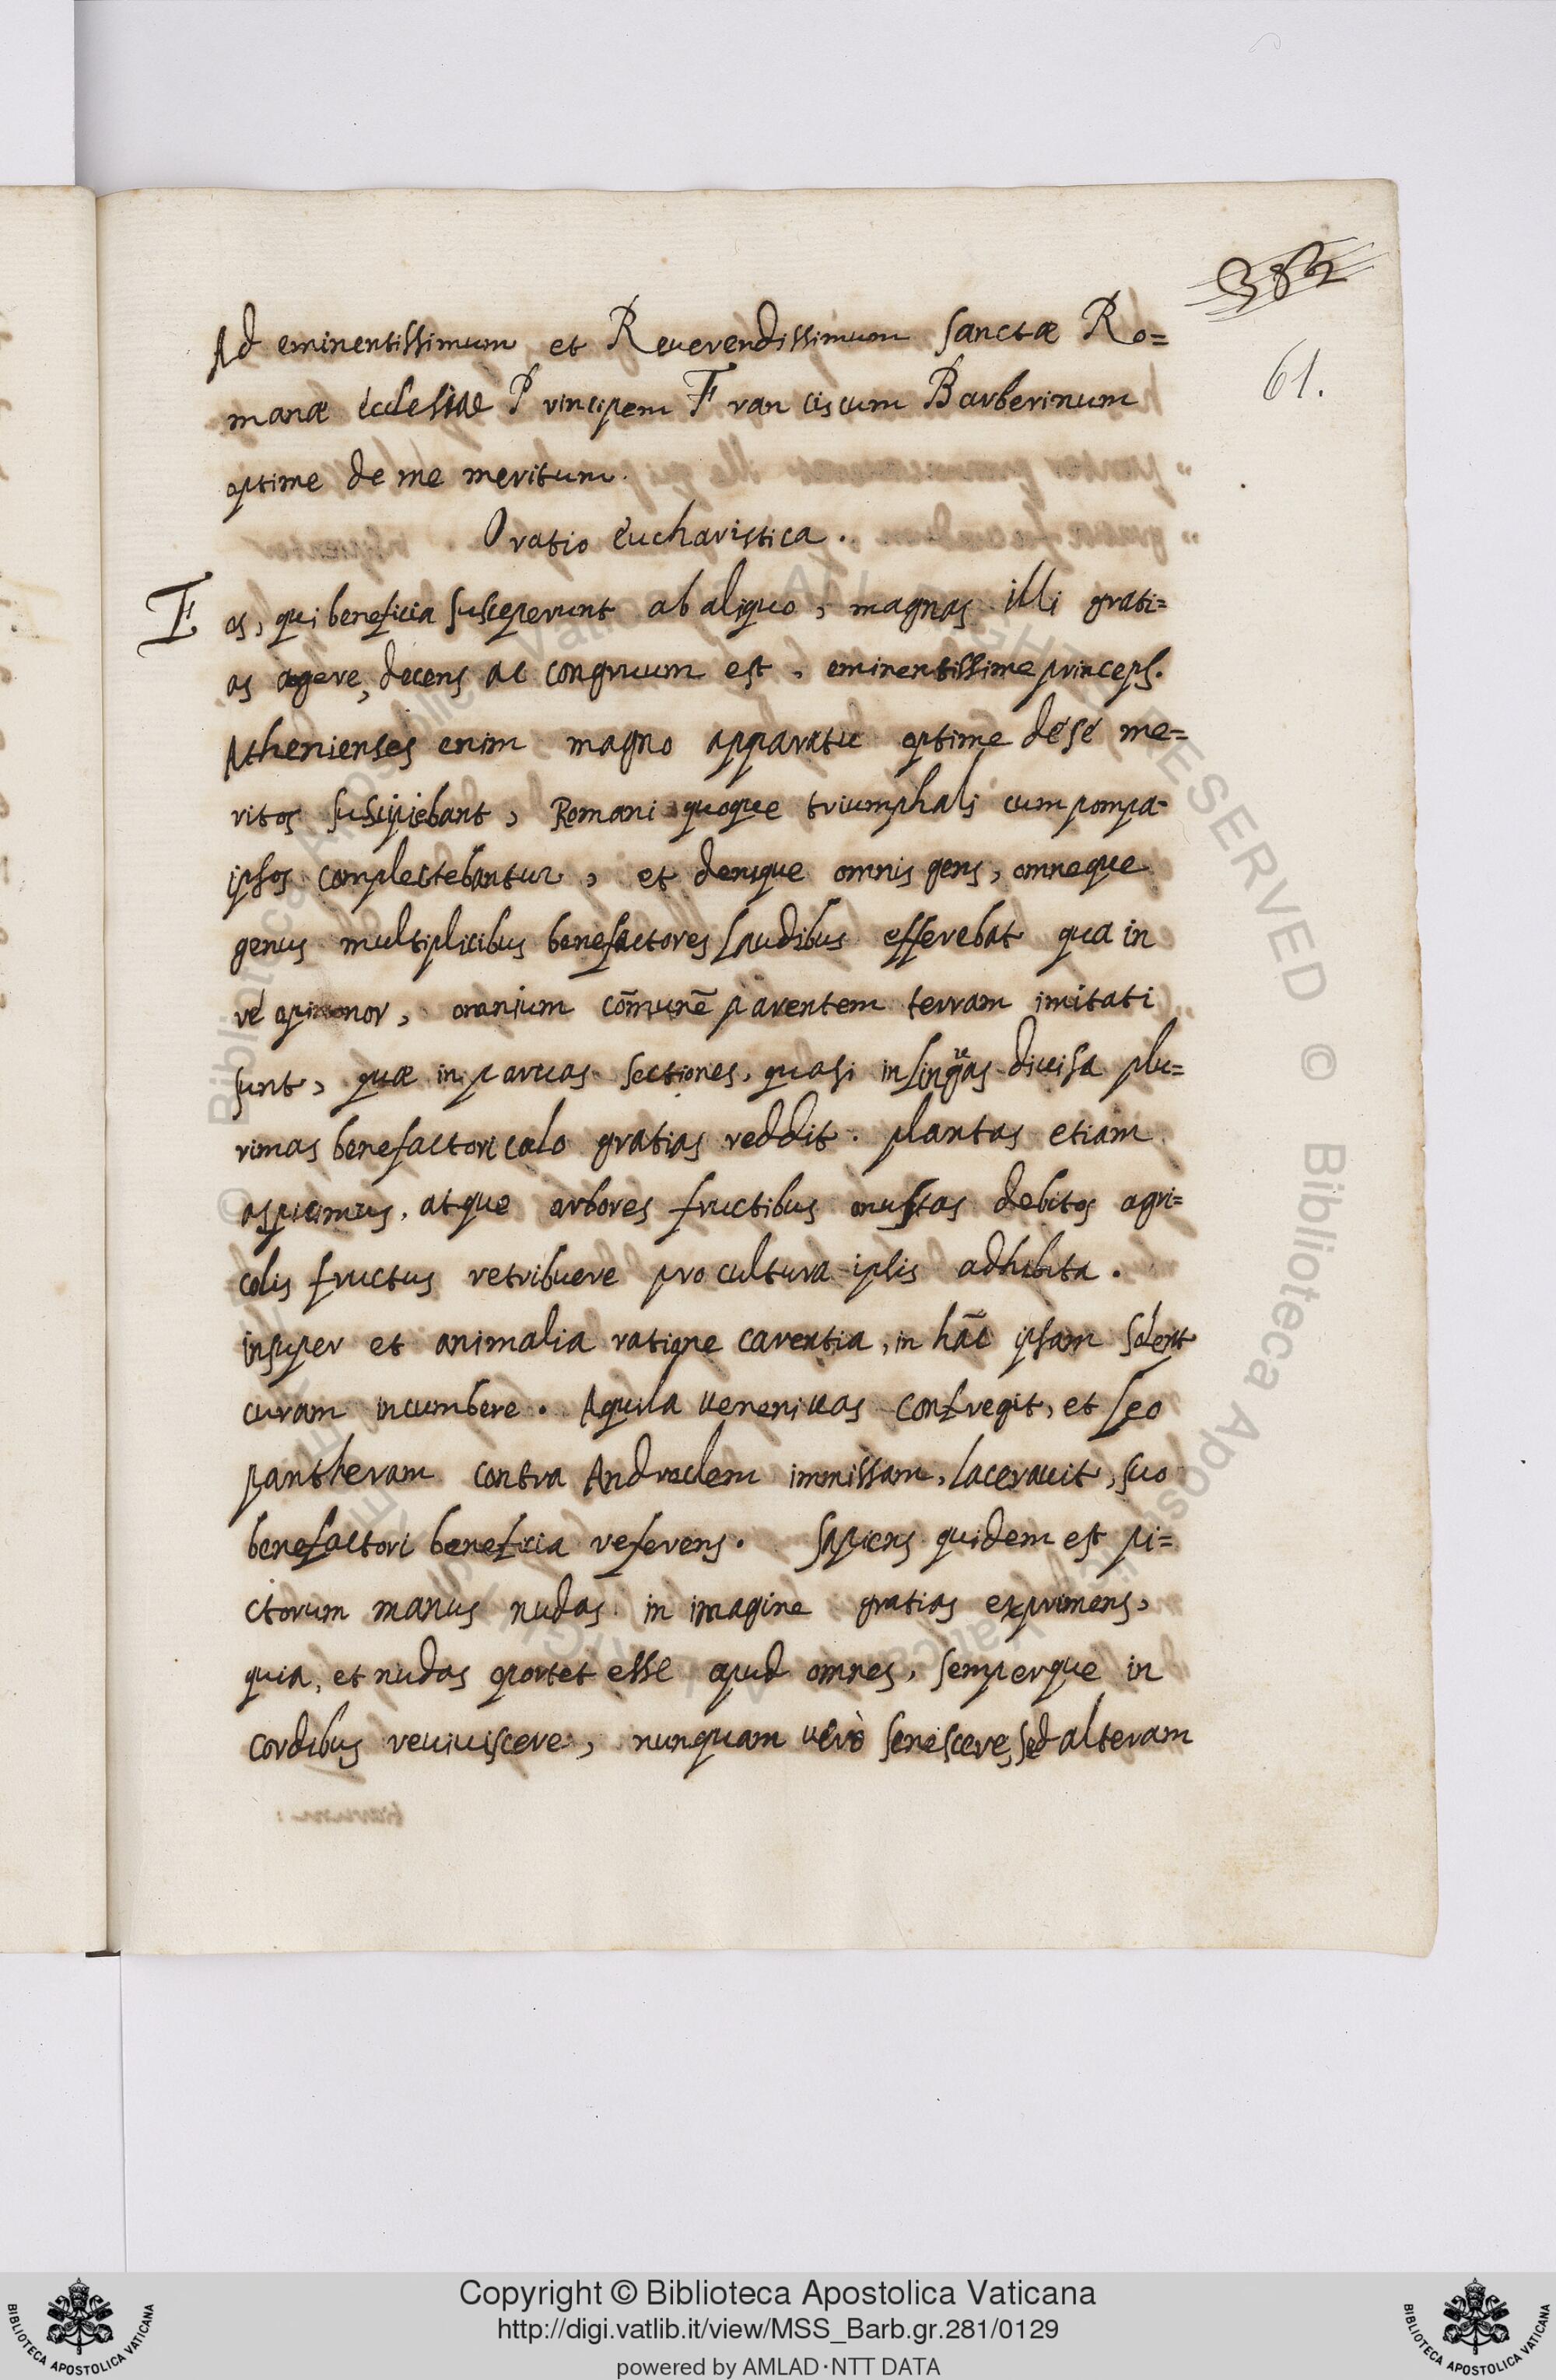 382
61.
Ad eminentissimum et Reuerendissimum Sanctæ Ro=
manæ Ecclesiae Principem Franciscum Barberinum
optime de me meritum.
Oratio Eucharistica.
Eos, qui beneficia susceperunt ab aliquo, magnas illi grati=
as agere, decens ac congruum est, eminentissime princeps.
Athenienses enim magno apparatu optime de se me=
ritos suscipiebant, Romani quoque triumphali cum pompa
ipsos complectebantur, et denique omnis gens, omneque
genus multiplicibus benefactores laudibus efferebat qua in
re opinonor, omnium com̄unē parentem terram imitati
sunt, quæ in paruas sectiones, quasi in lingas diuisa plu=
rimas benefactori cælo gratias reddit. plantas etiam
aspicimus, atque arbores fructibus onustas debitos agri=
colis fructus retribuere pro cultura ipsis adhibita.
insuper et animalia ratione carentia, in hāc ipsam solent
curam incumbere. Aquila ueneni uas confregit, et leo
pantheram contra Androclem immissam, lacerauit, suo
benefactori beneficia referens. Sapiens quidem est pi=
ctorum manus nudas in imagine gratias exprimens,
quia, et nudas oportet esse apud omnes, semperque in
cordibus reuiuiscere, nunquam uerò senescere, sed alteram
Copyright © Biblioteca Apostolica Vaticana
http://digi.vatlib.it/view/MSS_Barb.gr.281/0129
powered by AMLAD·NTT DATA
BIBLIOTECA APOSTOLICA VATICANA
BIBLIOTECA APOSTOLICA VATICANA